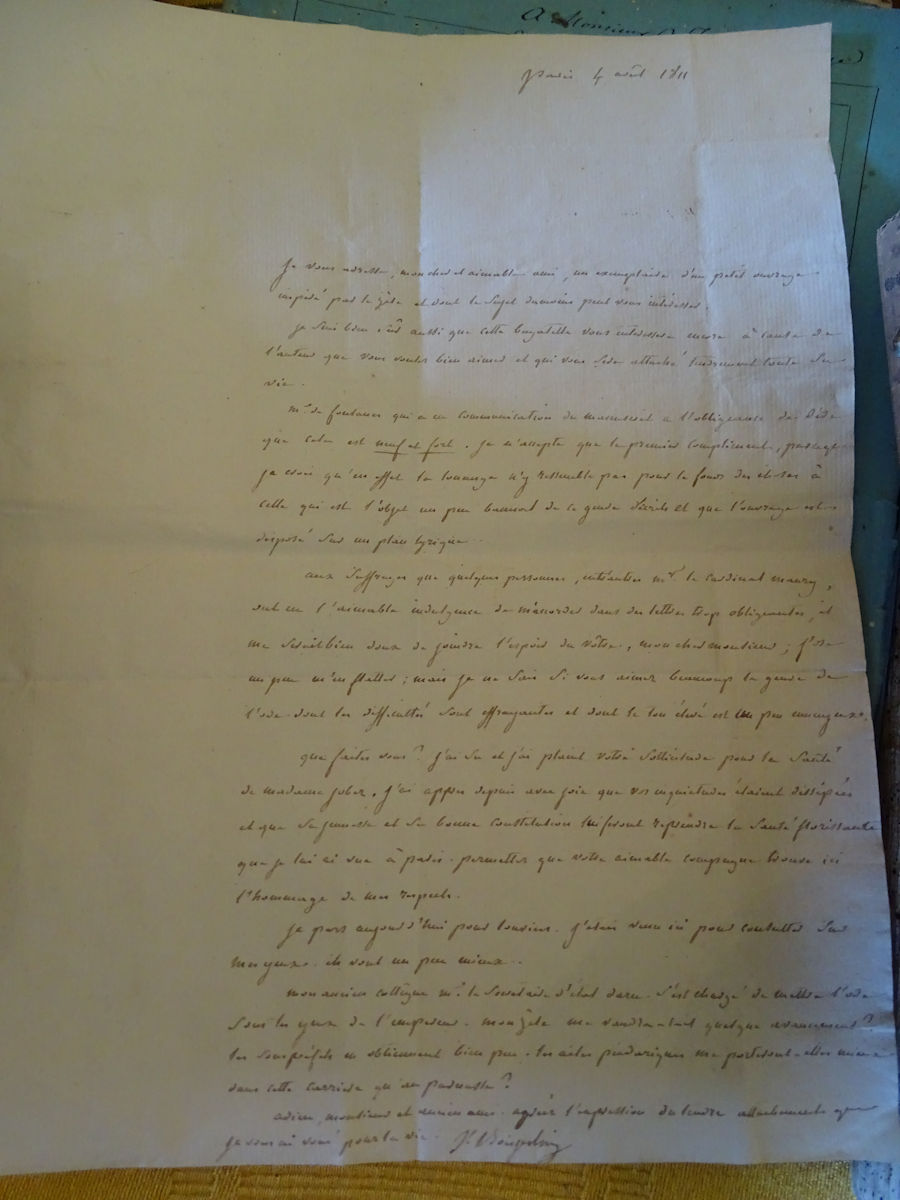 A Monsieur
Paris 4 avril 1811
Je vous adresse, mon cher et aimable ami, un exemplaire d'un petit ouvrage
inspiré par le zèle et dont le sujet du moins peut vous intéresser.
je suis bien sûr aussi que cette bagatelle vous intéressera encore à cause de
l'auteur que vous voulez bien aimer et qui vous sera attaché tendrement toute sa
vie.
mr. de fontanes qui a eu communication du manuscrit a l'obligeance de dire
que cela est neuf et fort. je n'accepte que le premier compliment, parceque
je crois qu'en effet la louange n'y ressemble pas pour le fonds des choses à
celle qui est l'objet un peu banal de ce genre d'écrits et que l'ouvrage est
disposé sur un plan lyrique.
aux suffrages que quelques personnes, entr'autres mr. le cardinal maury,
ont eu l'aimable indulgence de m'accorder dans des lettres trop obligeantes, il
me serait bien doux de joindre l'espoir du vôtre, mon cher monsieur; j'ose
un peu m'en flatter; mais je ne sais si vous aimez beaucoup le genre de
l'ode dont les difficultés sont effrayantes et dont le ton élevé est un peu ennuyeux.
que faites vous? j'ai su et j'ai plaint votre sollicitude pour la santé
de madame jobez. j'ai appris depuis avec joie que vos inquiétudes étaient dissipées
et que sa jeunesse et sa bonne constitution lui feront reprendre la santé florissante
que je lui ai vue à paris. permettez que votre aimable compagne trouve ici
l'hommage de mes respects.
je pars aujourd'hui pour louviers. j'étais venu ici pour consulter sur
mes yeux. ils vont un peu mieux.
mon ancien collègue mr. le secrétaire d'état daru s'est chargé de mettre l'ode
sous les yeux de l'empereur. mon zèle me vaudra-t-il quelque avancement?
les souspréfets en obtiennent bien peu. les ailes pindariques me porteront-elles mieux
dans cette carrière qu'au parnasse?
adieu, monsieur et ancien ami. agréez l'expression du tendre attachement que
je vous ai voué pour la vie.